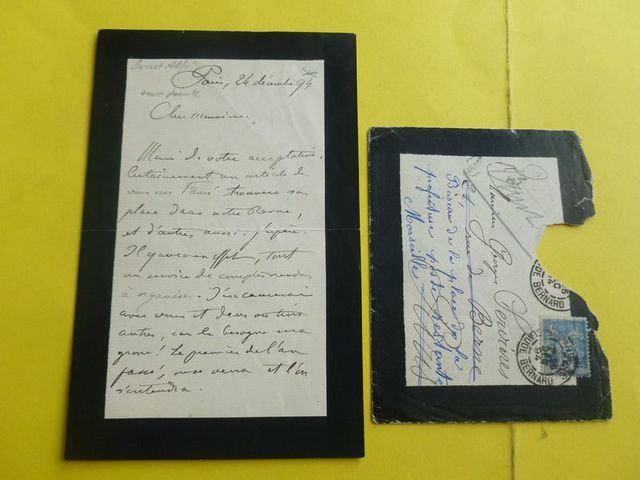 Paris, 24 décembre 94
Cher monsieur,
Merci de votre acceptation.
Certainement un article de
vous sur trouvera sa
place dans notre Revue,
et d'autres aussi, j'espère.
Il y aura en effet, tout
un service de comptes rendus
à organiser. J'en causerai
avec vous et deux ou trois
autres, car la besogne sera
grosse! Le premier de l'an
passé, on se verra et l'on
s'entendra.
Monsieur Georges
rue de
Bureau de la place de la
préfecture poste restante
Marseille
CLAUDE BERNARD
CLAUDE BERNARD